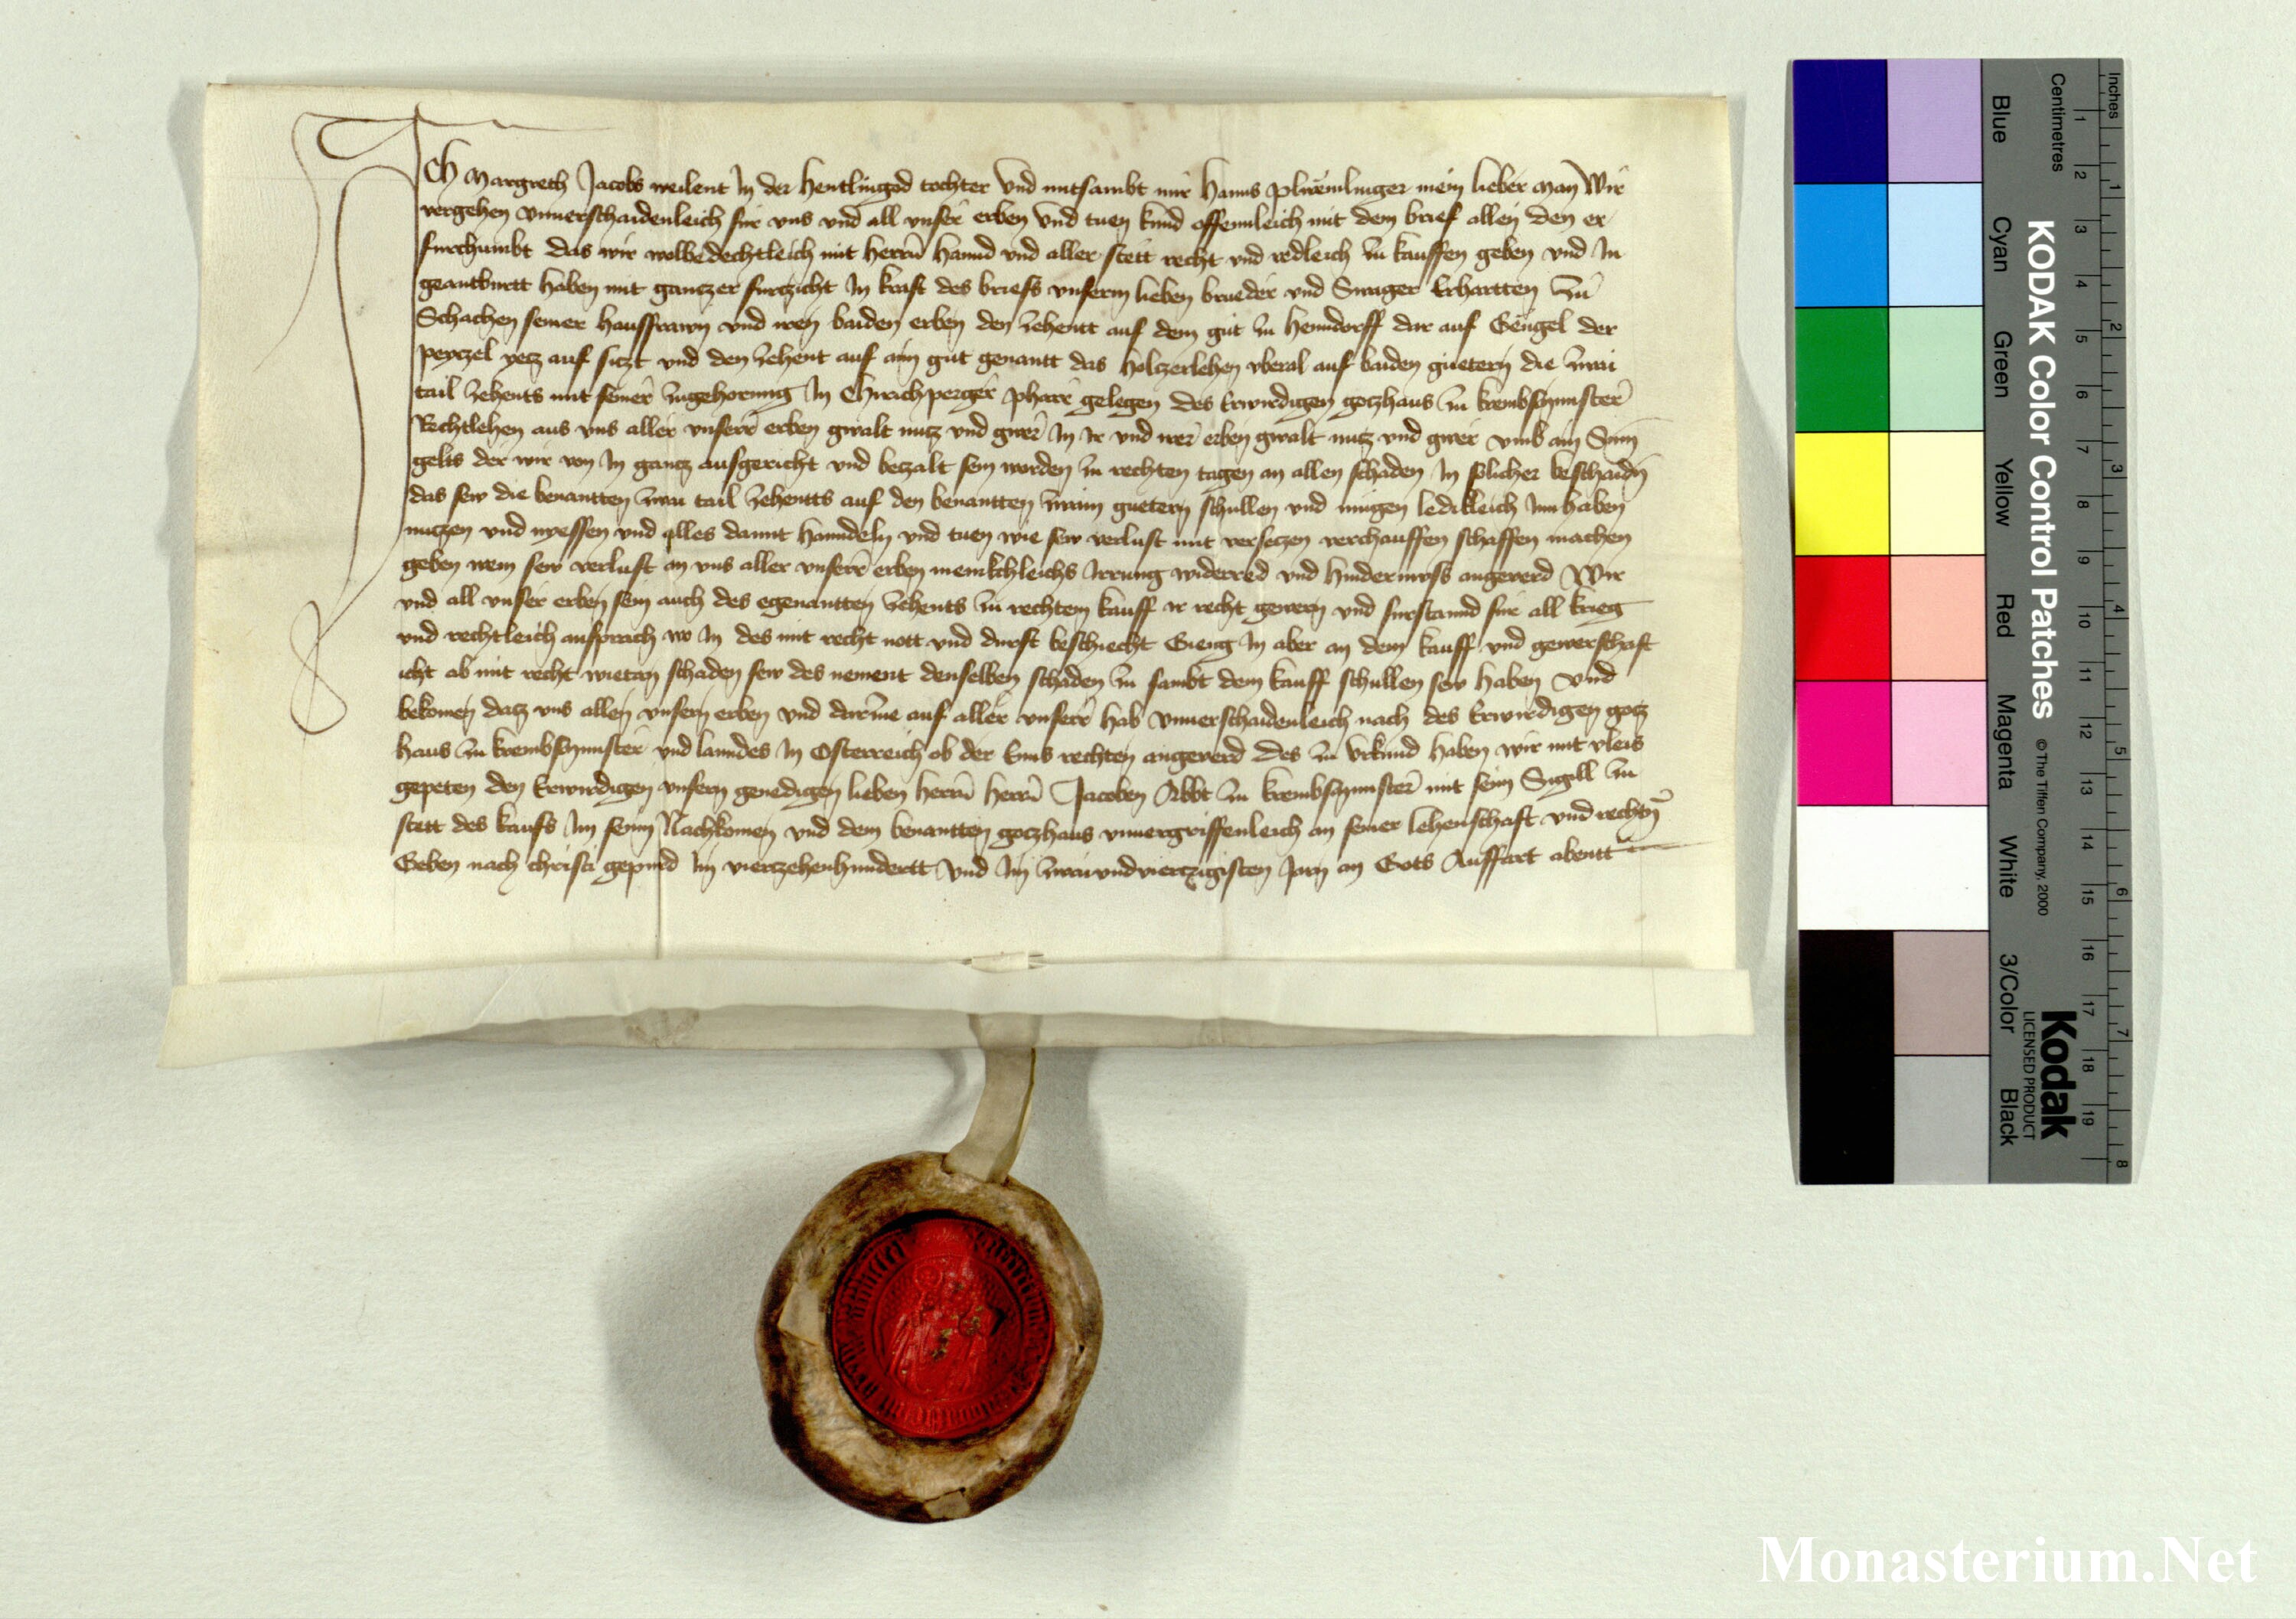 Ich Margreth Jacobs weilent in der Hentlingod tochter Vnd mitsambt mir Hanns mein lieber man Wir
vergehen vnuerschaidenleich für vns vnd all vnser erben Vnd tuen kund offennleich mit dem brief allen den er
furchumbt das wir wolbedechtleich mit herrn hannd vnd aller stett recht vnd redleich zu kauffen geben vnd In
geantburtt haben mit ganczer furczicht In kraft des briefs vnserm lieben brueder vnd Swager Erhartten zu
Schachen seiner hausfrawn vnd iren baiden erben den zehentt auf dem gut zu Henndorff dar auf Gengel der
peyczel yecz auf siczt vnd den zehent auf aim gut genantt das holczerlehen vberal auf baiden guetern die zwai
tail zehents mit seiner zugehorung In Chirichperger pharr gelegen des Erwirdigen goczhaus zu krembsmunster
Rechtlehen aus vns aller vnserr erben gwalt nucz vnd gwer In Ir vnd irer erben gwalt nucz vnd gwer vmb ain Sum
gelts der wir von In gancz ausgericht vnd beczalt sein worden zu rechten tagen an allen schaden In solicher beschaidn
das sew die benantten zwai tail zehentts auf den benantten zwain guetern schullen vnd mugen ledikleich Innhaben
nuczen vnd nyessen vnd alles damit hanndeln vnd tuen wie sew verlust mit verseczen verchauffen schaffen machen
geben wem sew verlust an vns aller vnserr erben menikchleichs Irrung widerred vnd hindernuss angeuerd Wir
vnd all vnser erben sein auch des egenantten zehents zu rechtem kauff ir recht gewern vnd furstannd für all krieg
vnd rechtleich ansprach wo In des mit recht nott vnd durft beschiecht Gieng In aber an dem kauff vnd gewerschaft
icht ab mit recht wietan schaden sew des nement denselben schaden zu sambt dem kauff schullen sew haben vnd
bekomen dacz vns allen vnsern erben vnd darczue auf aller vnserr hab vnuerschaidenleich nach des Erwirdigen gocz
haus zu krembsmunster vnd lanndes In Osterreich ob der Enns rechten angeuerd Des zu Vrkund haben wir mit vleis
gepeten den Erwirdigen vnsern genedigen lieben herrn herrn Jacoben Abbt zu krembsmunster mit seim Sigill zu
stett des kaufs Im seinn Nachkomen vnd dem benantten goczhaus vnuergriffenleich an seiner lehenschaft vnd rechtn
Geben nach christi gepurd Im vierczehenhundertt Vnd Im zwaivndvierczigisten Jarn an Gots Auffart abentt
Inches
Centimetres
1 2 3 4 5 6 7 8 9 10 11 12 13 14 15 16 17 18 19
1 2 3 4 5 6 7 8
KODAK Color Control Patches © The Tiffen Company, 2000
Kodak
LICENSED PRODUCT
Blue Cyan Green Yellow Red Magenta White 3/Color Black
Monasterium.Net